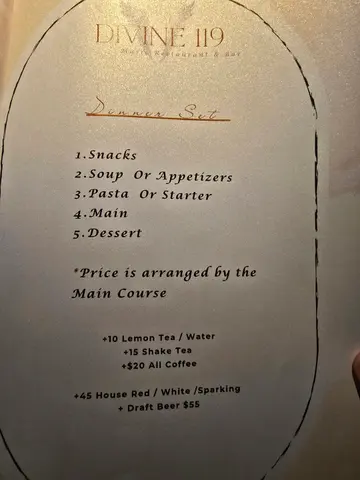 DIVINE 119
Music Restaurant & Bar
Dinner Set
1.Snacks
2.Soup Or Appetizers
3.Pasta Or Starter
4.Main
5.Dessert
*Price is arranged by the
Main Course
+10 Lemon Tea / Water
+15 Shake Tea
+$20 All Coffee
+45 House Red / White /Sparking
+ Draft Beer $55